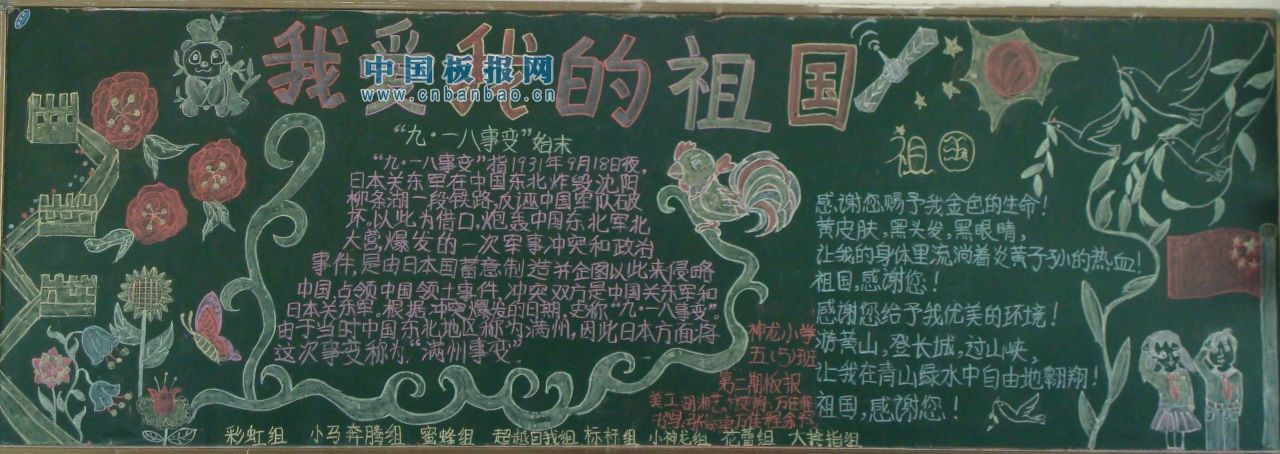 我爱我的祖国
中国板报网
www.cnbanbao.cn
“九·一八事变”始末
“九·一八事变”指1931年9月18日夜,
日本关东军在中国东北炸毁沈阳
柳条湖一段铁路,反诬中国军队破
坏,以此为借口,炮轰中国东北军北
大营,爆发的一次军事冲突和政治
事件,是由日本国蓄意制造并企图以此来侵略
中国,占领中国领土事件,冲突双方是中国关东军和
日本关东军。根据冲突爆发的日期,史称“九·一八事变”。
由于当时中国东北地区称为满州,因此日本方面将
这次事变称为“满州事变”。
神龙小学
五(5)班
第二期板报
美工
祖国
感谢您赐予我金色的生命!
黄皮肤,黑头发,黑眼睛,
让我的身体里流淌着炎黄子孙的热血!
祖国,感谢您!
感谢您给予我优美的环境!
游黄山,登长城,过山峡,
让我在青山绿水中自由地翱翔!
祖国,感谢您!
彩虹组 小马奔腾组 蜜蜂组 超越自我组 标杆组 小神龙组 花蕾组 大拇指组